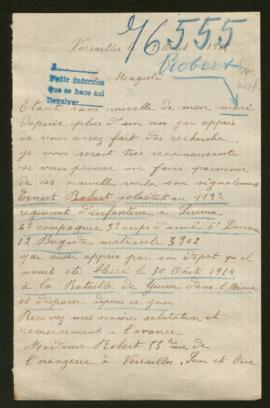 Versailles le
76555
Robert
1
Pedir informes
que se hace así
Devolver
Magesté
Etant sans nouvelle de mon mari
depuis plus d'un an j'ai appris
de vous avez fait des recherche
je vous serait très reconnaissante
si vous pouvez me faire parvenir
de ces nouvelle voila son signalement
Ernest Robert soldat au 119e
regiment d'infanterie a Lisieux
4e compagnie 3e corps d'armé
12 Brigade matricule 3902
j'ai aussi appris par son depot qu'il
avait été blessé le 30 Août 1914
à la Bataille de Guise dans l'Aisne
et disparu depuis ce jour
Recevez mes sincères salutation et
remerciement a l'avance
Madame Robert 55 rue de
l'orangerie à Versailles. Seine et Oise